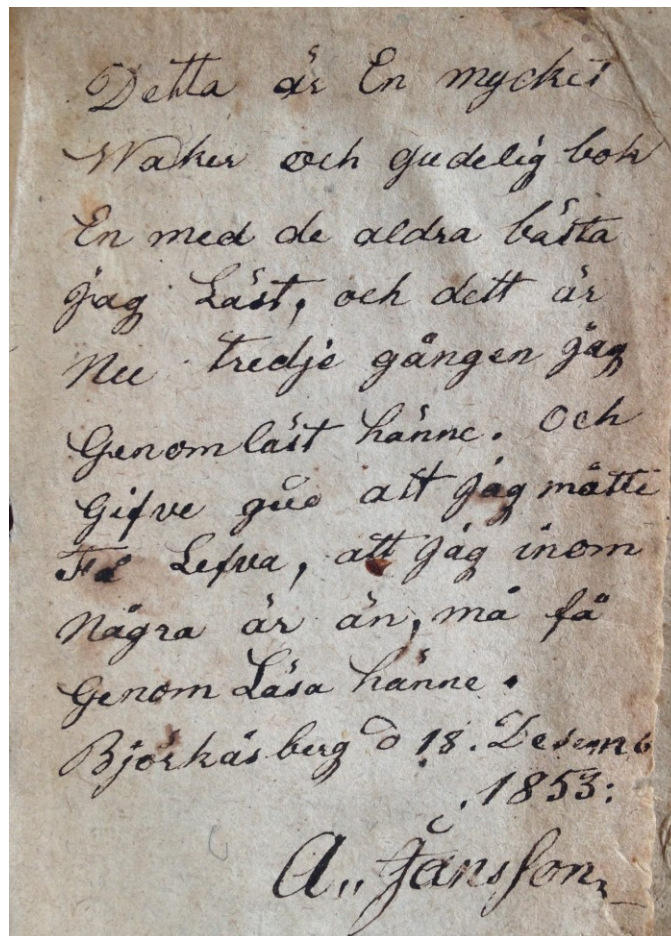 Detta är En mycket
Waker och gudelig bok
En med de aldra bästa
jag Läst, och dett är
Nu tredje gången jag
Genomläst hänne. Och
Gifve gud att jag måtte
Få Lefva, att jag inom
Några år än, må få
Genom Läsa hänne.
Björkåsberg d 18. Desemb
1853:
A.. Jansson